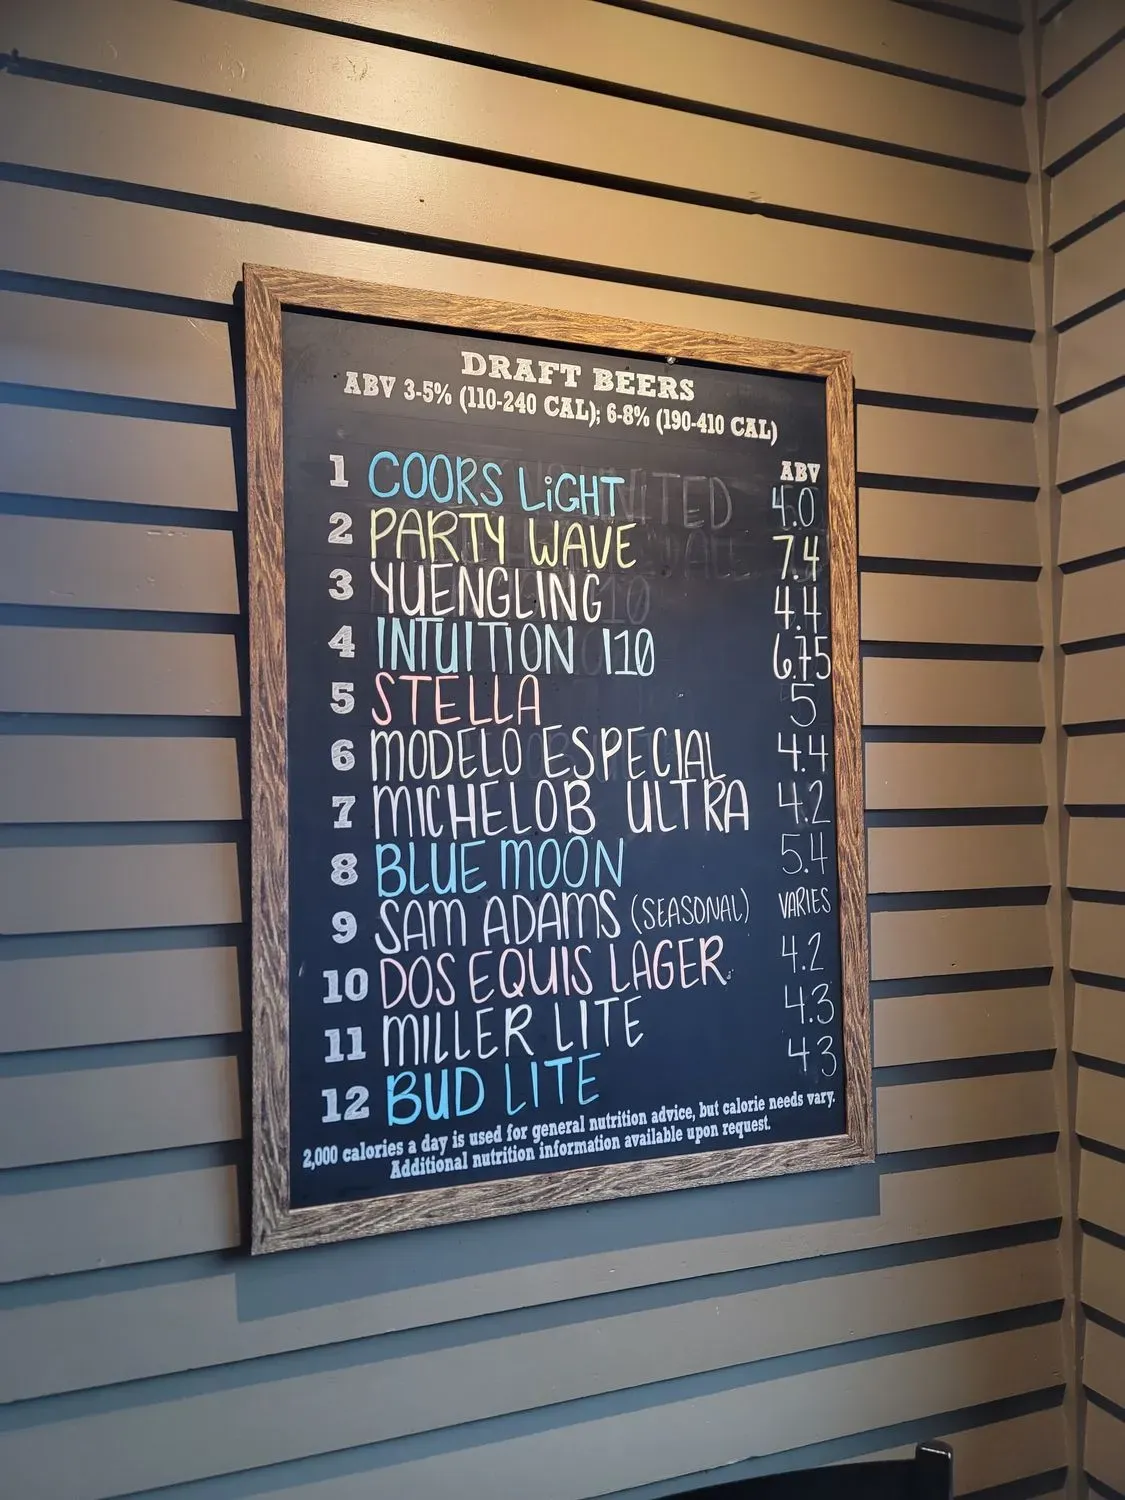 DRAFT BEERS
ABV 3-5% (110-240 CAL); 6-8% (190-410 CAL)
ABV
1 COORS LiGHT 4.0
2 PARTY WAVE 7.4
3 YUENGLING 4.4
4 INTUITION I10 6.75
5 STELLA 5
6 MODELO ESPECIAL 4.4
7 MICHELOB ULTRA 4.2
8 BLUE MOON 5.4
9 SAM ADAMS (SEASONAL) VARIES
10 DOS EQUIS LAGER 4.2
11 MILLER LITE 4.3
12 BUD LITE 4.3
2,000 calories a day is used for general nutrition advice, but calorie needs vary.
Additional nutrition information available upon request.